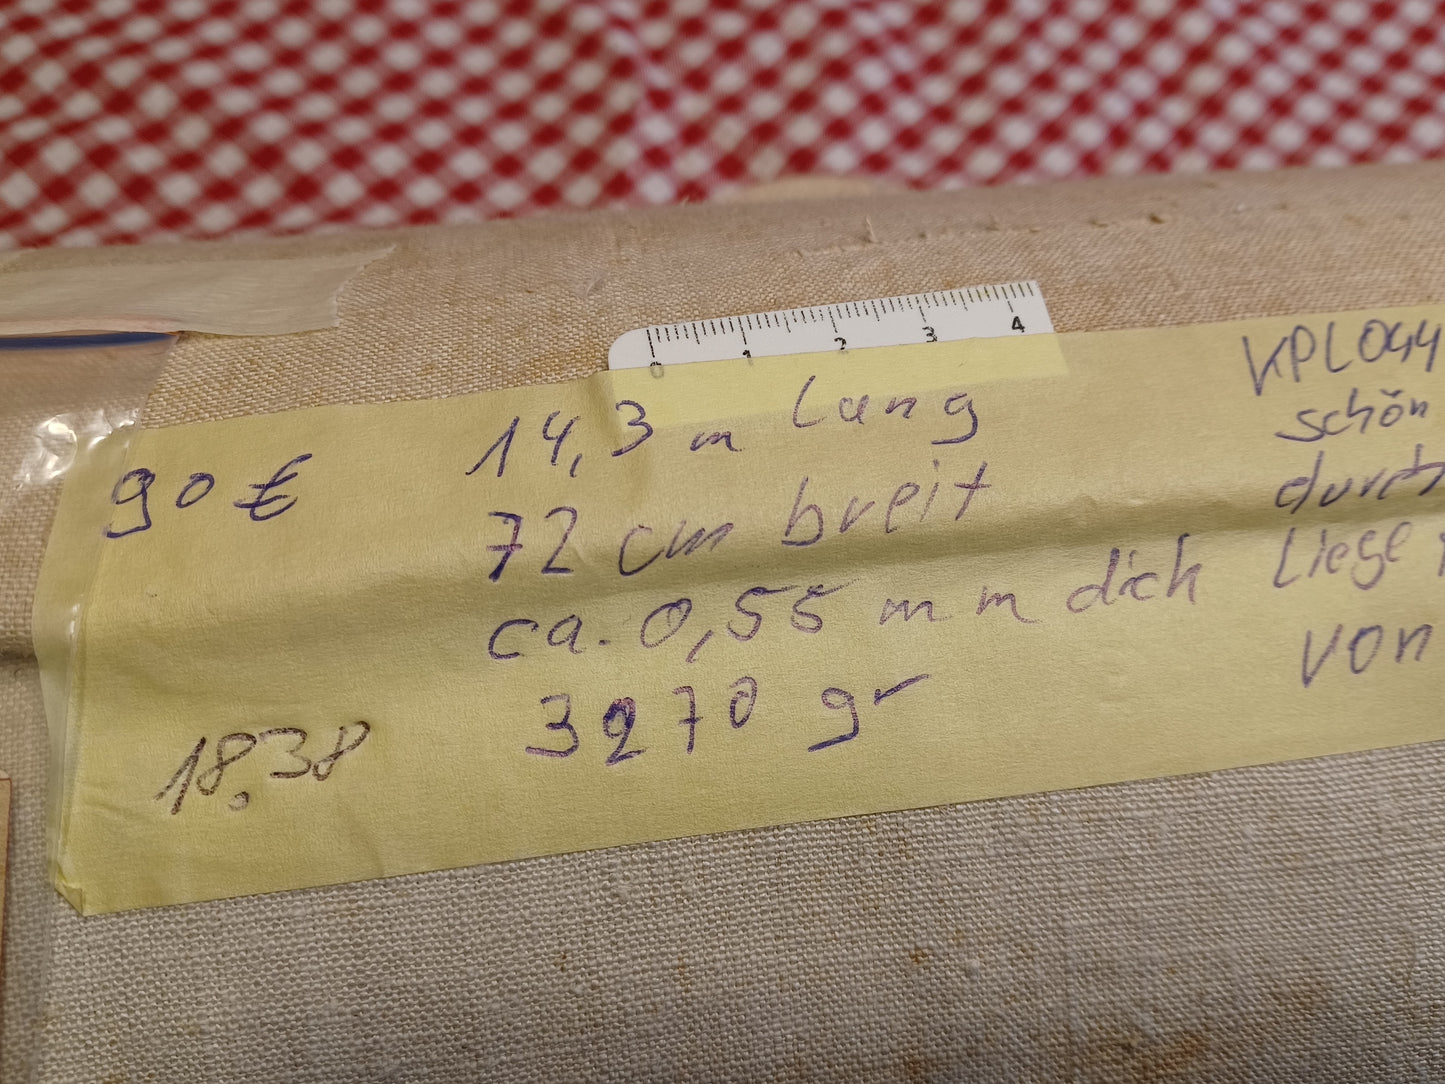 0 1 2 3 4
90 €
14,3 m lang
72 cm breit
ca. 0,55 mm dick
3270 gr
18,38
KPL044
schön
durch
Liege
von